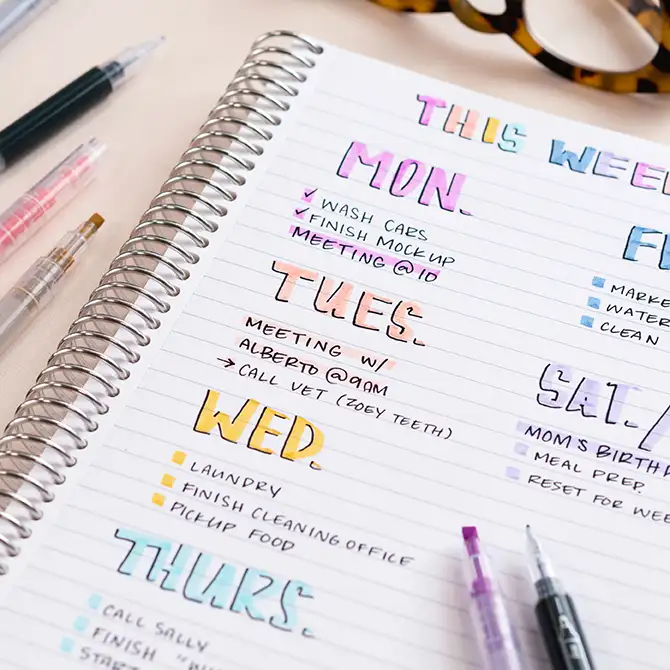 THIS WEEK
MON.
WASH CARS
FINISH MOCKUP
MEETING @ 10
TUES.
MEETING W/
ALBERTO @ 9AM
→ CALL VET (ZOEY TEETH)
WED.
LAUNDRY
FINISH CLEANING OFFICE
PICKUP FOOD
THURS.
CALL SALLY
FINISH
START
WATER
CLEAN
SAT./
MOM'S
MEAL PREP.
RESET FOR